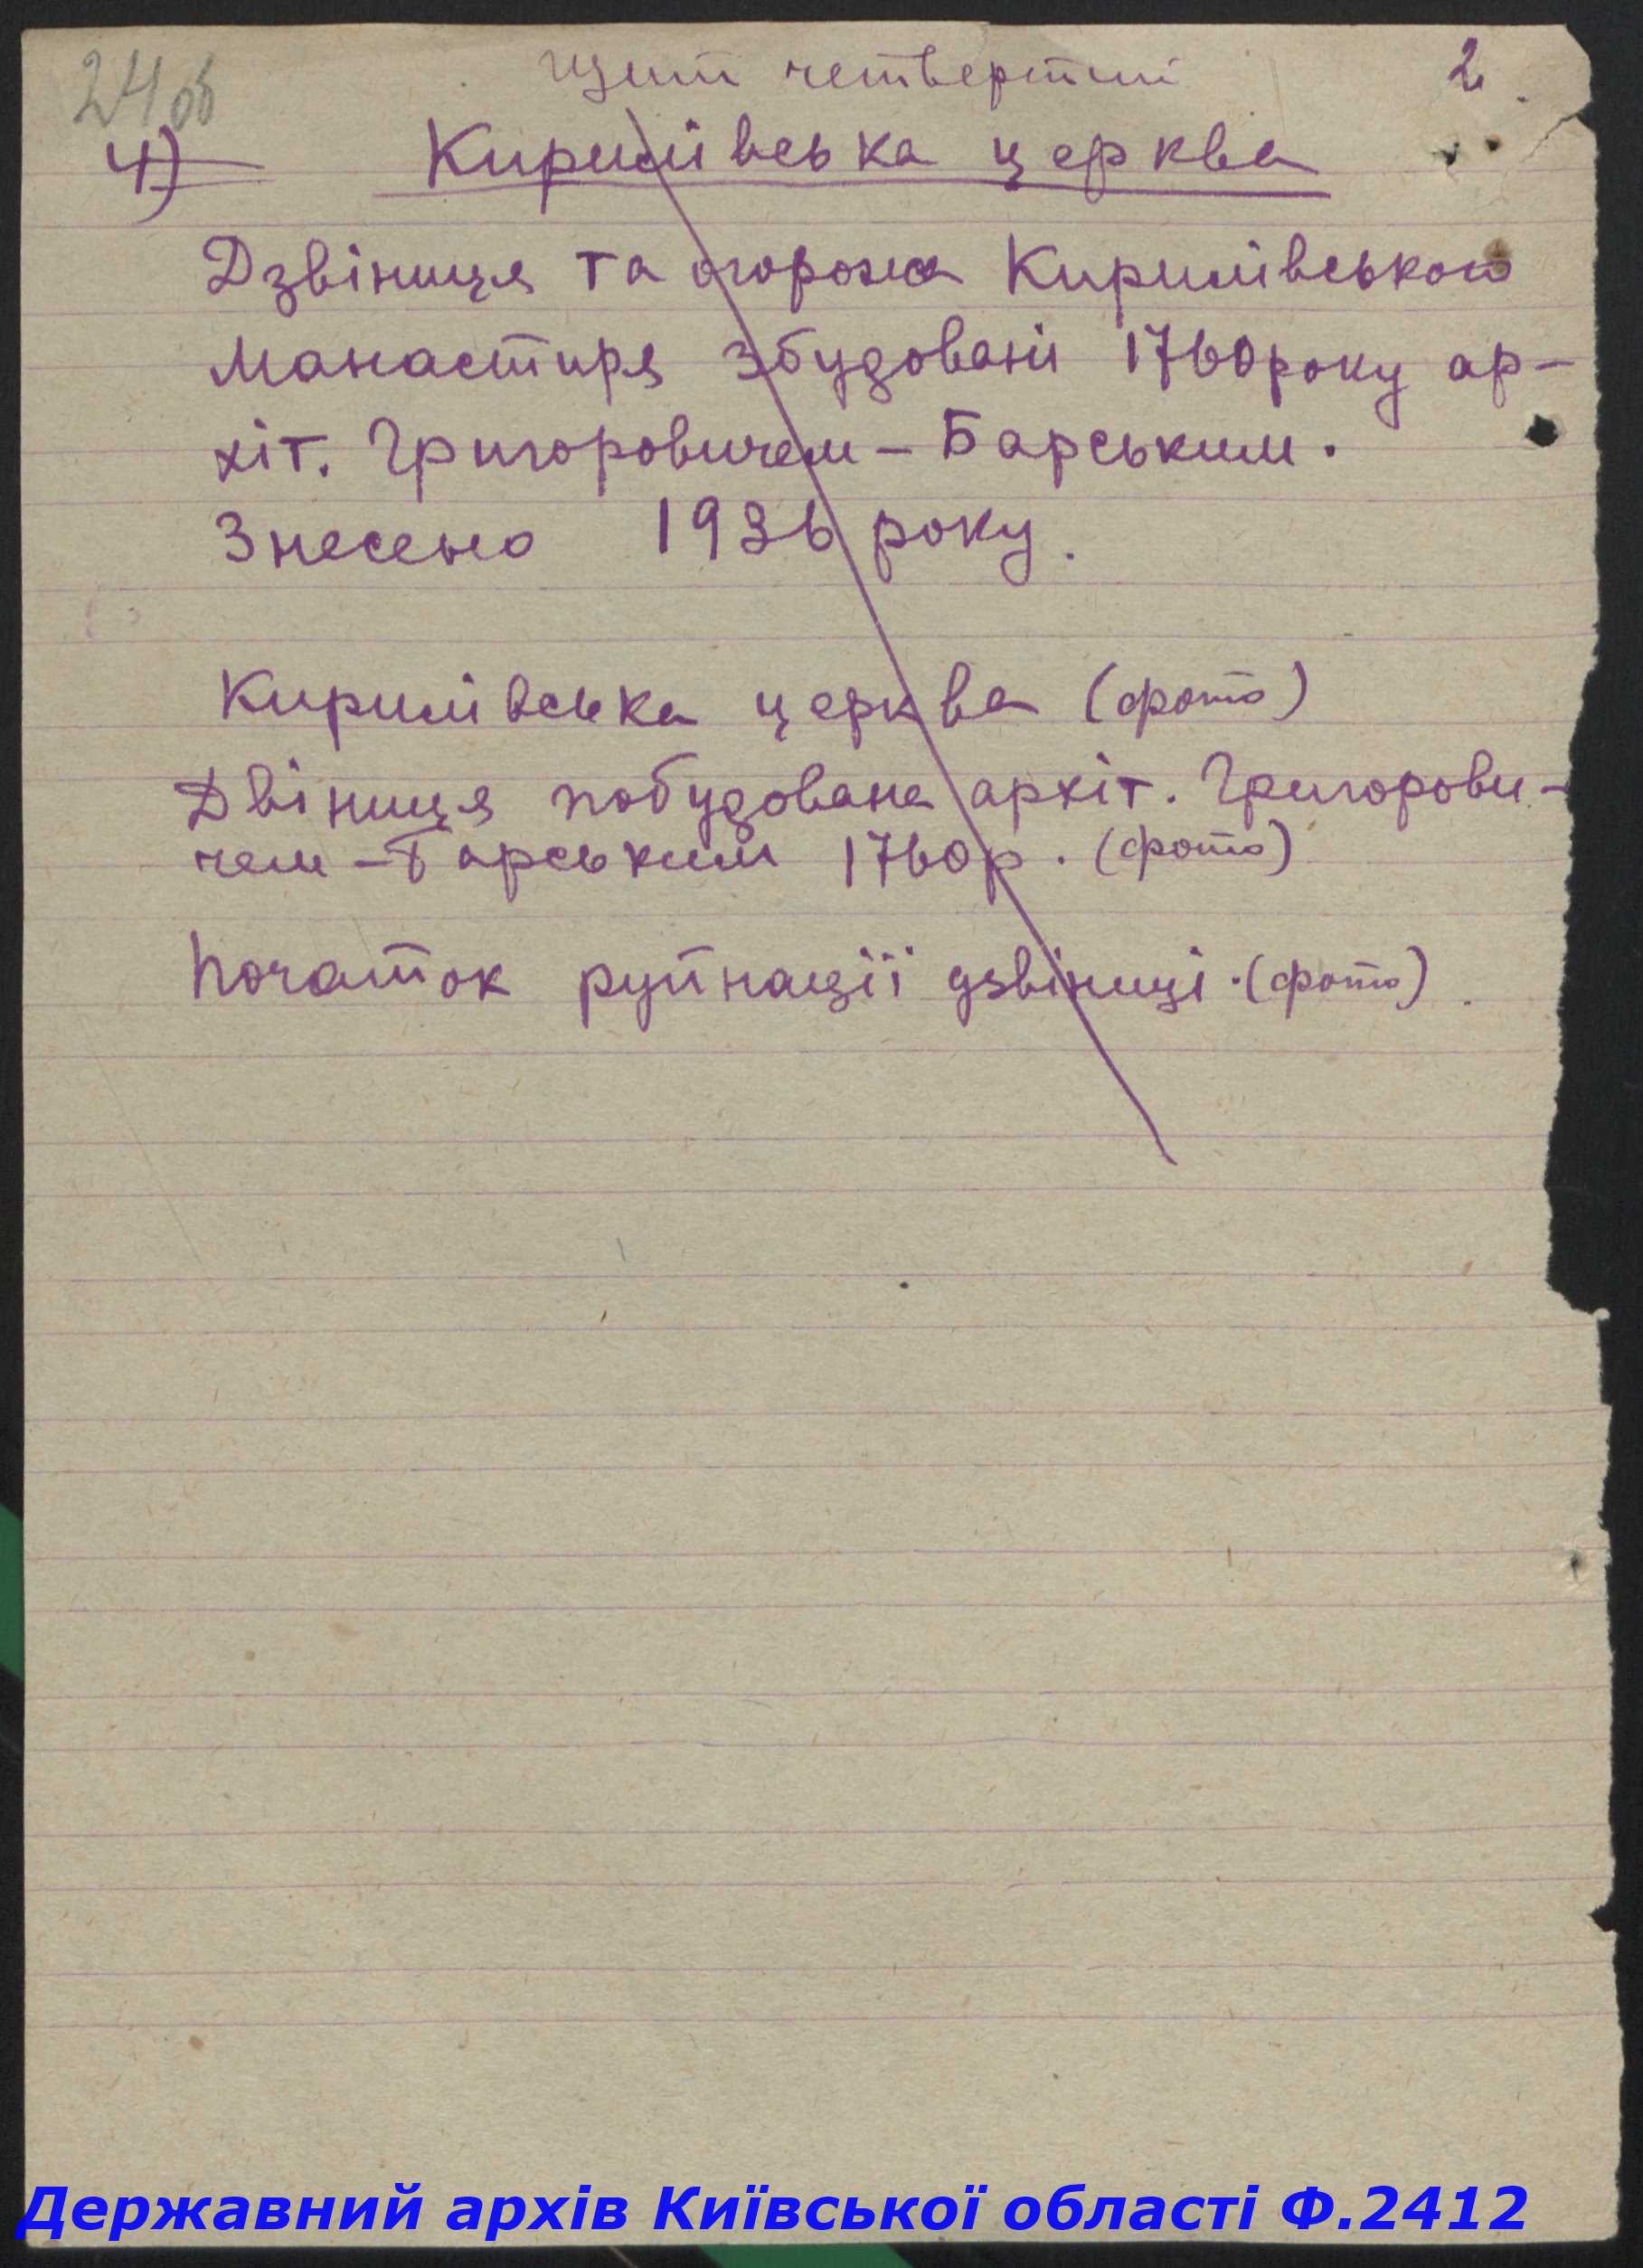 24об
Щит четвертий 2
4) Кирилівська церква
Дзвіниця та огорожа Кирилівського
Манастиря збудовані 1760 року ар-
хіт. Григоровичем – Барським.
Знесено 1936 року.
Кирилівська церква (фото)
Двіниця побудована архіт. Григорови-
чем – Барським 1760 р. (фото)
Початок руйнації дзвіниці. (фото)
Державний архів Київської області Ф.2412